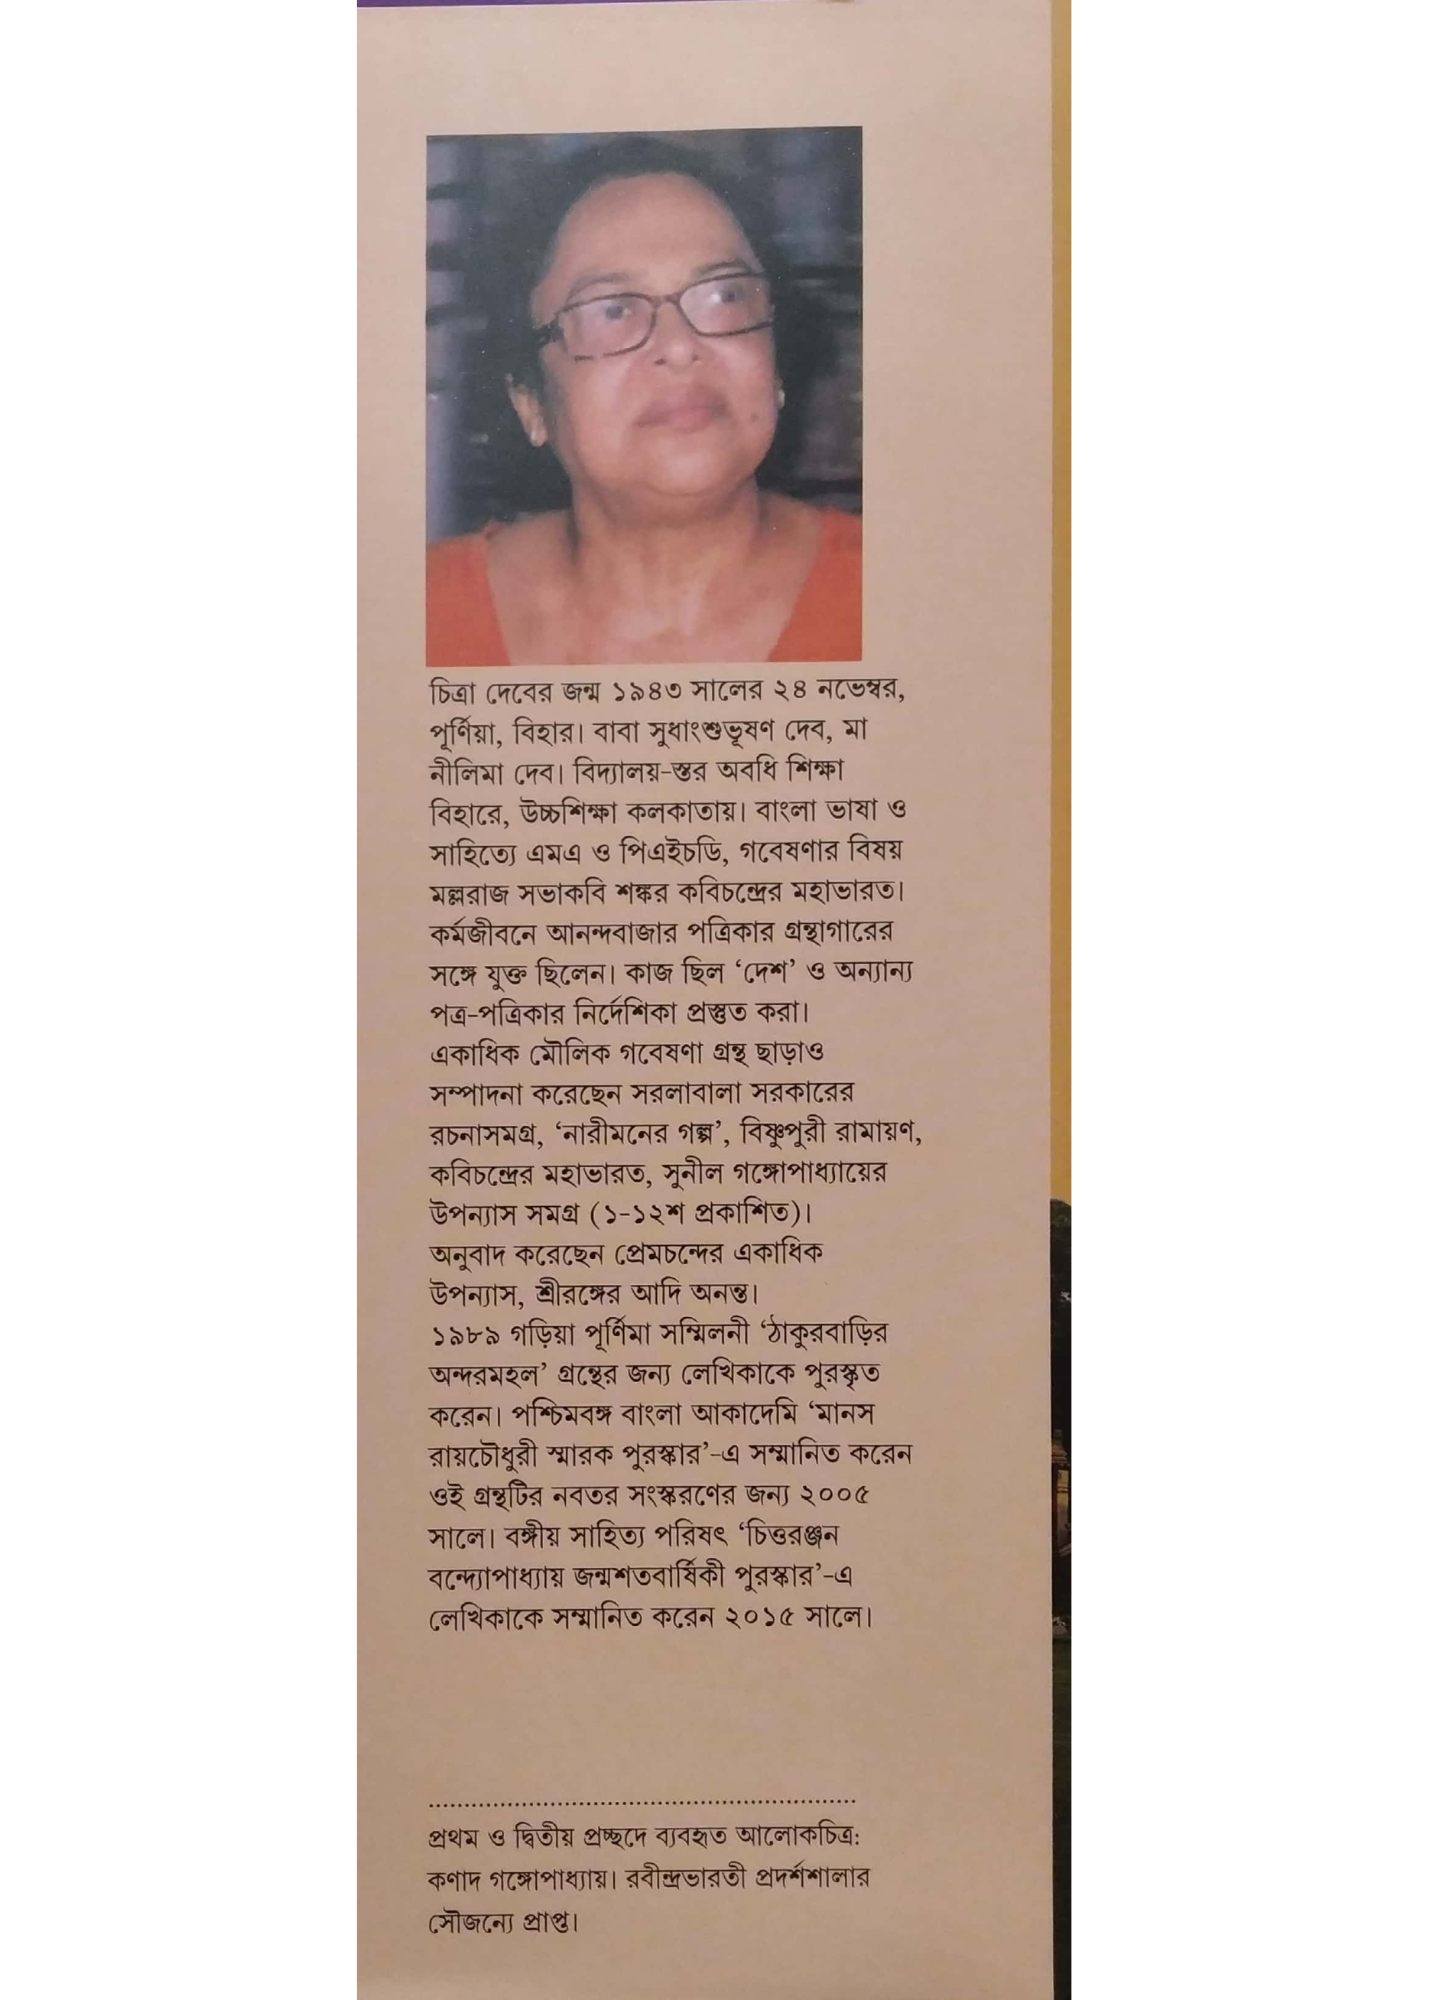 চিত্রা দেবের জন্ম ১৯৪৩ সালের ২৪ নভেম্বর,
পূর্ণিয়া, বিহার। বাবা সুধাংশুভূষণ দেব, মা
নীলিমা দেব। বিদ্যালয়-স্তর অবধি শিক্ষা
বিহারে, উচ্চশিক্ষা কলকাতায়। বাংলা ভাষা ও
সাহিত্যে এমএ ও পিএইচডি, গবেষণার বিষয়
মল্লরাজ সভাকবি শঙ্কর কবিচন্দ্রের মহাভারত।
কর্মজীবনে আনন্দবাজার পত্রিকার গ্রন্থাগারের
সঙ্গে যুক্ত ছিলেন। কাজ ছিল ‘দেশ’ ও অন্যান্য
পত্র-পত্রিকার নির্দেশিকা প্রস্তুত করা।
একাধিক মৌলিক গবেষণা গ্রন্থ ছাড়াও
সম্পাদনা করেছেন সরলাবালা সরকারের
রচনাসমগ্র, ‘নারীমনের গল্প’, বিষ্ণুপুরী রামায়ণ,
কবিচন্দ্রের মহাভারত, সুনীল গঙ্গোপাধ্যায়ের
উপন্যাস সমগ্র (১-১২শ প্রকাশিত)।
অনুবাদ করেছেন প্রেমচন্দের একাধিক
উপন্যাস, শ্রীরঙ্গের আদি অনন্ত।
১৯৮৯ গড়িয়া পূর্ণিমা সম্মিলনী ‘ঠাকুরবাড়ির
অন্দরমহল’ গ্রন্থের জন্য লেখিকাকে পুরস্কৃত
করেন। পশ্চিমবঙ্গ বাংলা আকাদেমি ‘মানস
রায়চৌধুরী স্মারক পুরস্কার’-এ সম্মানিত করেন
ওই গ্রন্থটির নবতর সংস্করণের জন্য ২০০৫
সালে। বঙ্গীয় সাহিত্য পরিষৎ ‘চিত্তরঞ্জন
বন্দ্যোপাধ্যায় জন্মশতবার্ষিকী পুরস্কার’-এ
লেখিকাকে সম্মানিত করেন ২০১৫ সালে।
প্রথম ও দ্বিতীয় প্রচ্ছদে ব্যবহৃত আলোকচিত্র:
কণাদ গঙ্গোপাধ্যায়। রবীন্দ্রভারতী প্রদর্শশালার
সৌজন্যে প্রাপ্ত।